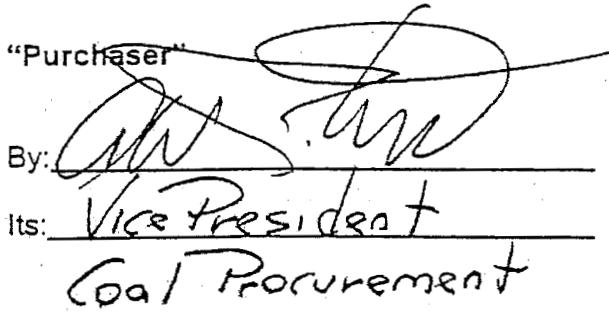 “Purchaser”
By:
Its: Vice President
Coal Procurement